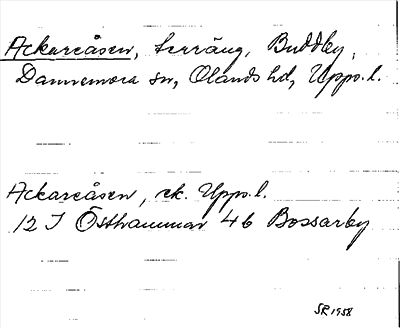 Ackareåsen, terräng, Buddby,
Dannemora sn, Olands hd, Upps. l.
Ackareåsen, ek. Upps. l.
12 I Östhammar 4b Bossarby
SR 1958